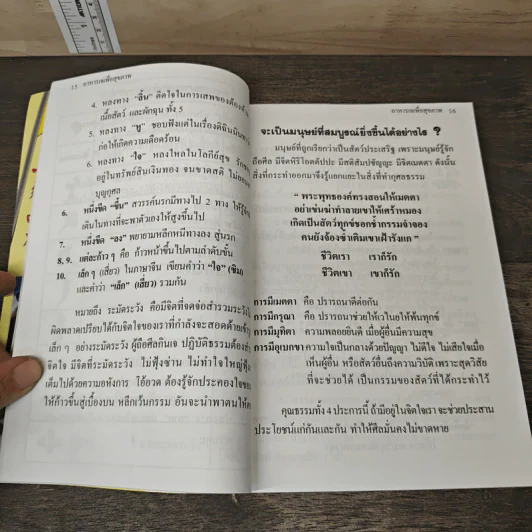 15 อาหารเจเพื่อสุขภาพ
4. หลงทาง “ลิ้น” ติดใจในการเสพของต้องห้าม
เนื้อสัตว์ และผักฉุน ทั้ง 5
5. หลงทาง “หู” ชอบฟังแต่ในเรื่องติฉินนินทา
ก่อให้เกิดความเดือดร้อน
6. หลงทาง “ใจ” หลงใหลในโลกีย์สุข
อยู่ในทรัพย์สินเงินทอง จนขาดสติ ไม่ยอม
บุญกุศล
6. หนึ่งขีด “ขึ้น” สวรรค์นรกมีทางไป 2 ทาง ให้รู้จัก
เดินในทางที่จะพาตัวเองให้สูงขึ้นไป
7. หนึ่งขีด “ลง” พยายามหลีกหนีทางลง สู่นรก
8, 9. แต่ละก้าว ๆ คือ ก้าวหน้าขึ้นไปตามลำดับขั้น
10. เล็ก ๆ (เสี่ยว) ในภาษาจีน เขียนคำว่า “ใจ” (ซิม)
และคำว่า “เล็ก” (เสี่ยว) รวมกัน
หมายถึง ระมัดระวัง คือมีจิตที่จดจ่อสำรวมระวัง
ผิดพลาดเปรียบได้กับจิตใจของเราที่กำลังจะสอดด้ายเข้า
เล็ก ๆ อย่างระมัดระวัง ผู้ถือศีลกินเจ ปฏิบัติธรรมต้อง
จิตใจ มีจิตที่ระมัดระวัง ไม่ฟุ้งซ่าน ไม่ทำใจใหญ่
เต็มไปด้วยความอหังการ โอ้อวด ต้องรู้จักประคองใจของ
ให้ก้าวขึ้นสู่เบื้องบน หลีกเว้นกรรม อันจะนำพาตนให้
อาหารเจเพื่อสุขภาพ 16
จะเป็นมนุษย์ที่สมบูรณ์ยิ่งขึ้นได้อย่างไร ?
มนุษย์ที่ถูกเรียกว่าเป็นสัตว์ประเสริฐ เพราะมนุษย์รู้จัก
ถือศีล มีจิตหิริโอตตัปปะ มีสติสัมปชัญญะ มีจิตเมตตา ดังนั้น
สิ่งที่กระทำออกมาจึงรู้แยกแยะในสิ่งที่ทำกุศลธรรม
“ พระพุทธองค์ทรงสอนให้เมตตา
อย่าเข่นฆ่าทำลายเขาให้เศร้าหมอง
เกิดเป็นสัตว์ทุกข์ชอกช้ำกรรมจำจอง
คนยังจ้องซ้ำเติมเขาเฝ้ารังแก ”
ชีวิตเรา เราก็รัก
ชีวิตเขา เขาก็รัก
การมีเมตตา คือ ปรารถนาดีต่อกัน
การมีกรุณา คือ ปรารถนาช่วยให้เว้นให้พ้นทุกข์
การมีมุทิตา ความพลอยยินดี เมื่อผู้อื่นมีความสุข
การมีอุเบกขา ความใจเป็นกลางด้วยปัญญา ไม่ดีใจ ไม่เสียใจเมื่อ
เห็นผู้อื่น หรือสัตว์อื่นถึงความวิบัติ เพราะสุดวิสัย
ที่จะช่วยได้ เป็นกรรมของสัตว์ที่ได้กระทำไว้
คุณธรรมทั้ง 4 ประการนี้ ถ้ามีอยู่ในจิตใจเรา จะช่วยประสาน
ประโยชน์แก่กันและกัน ทำให้ศีลมั่นคงไม่ขาดหาย